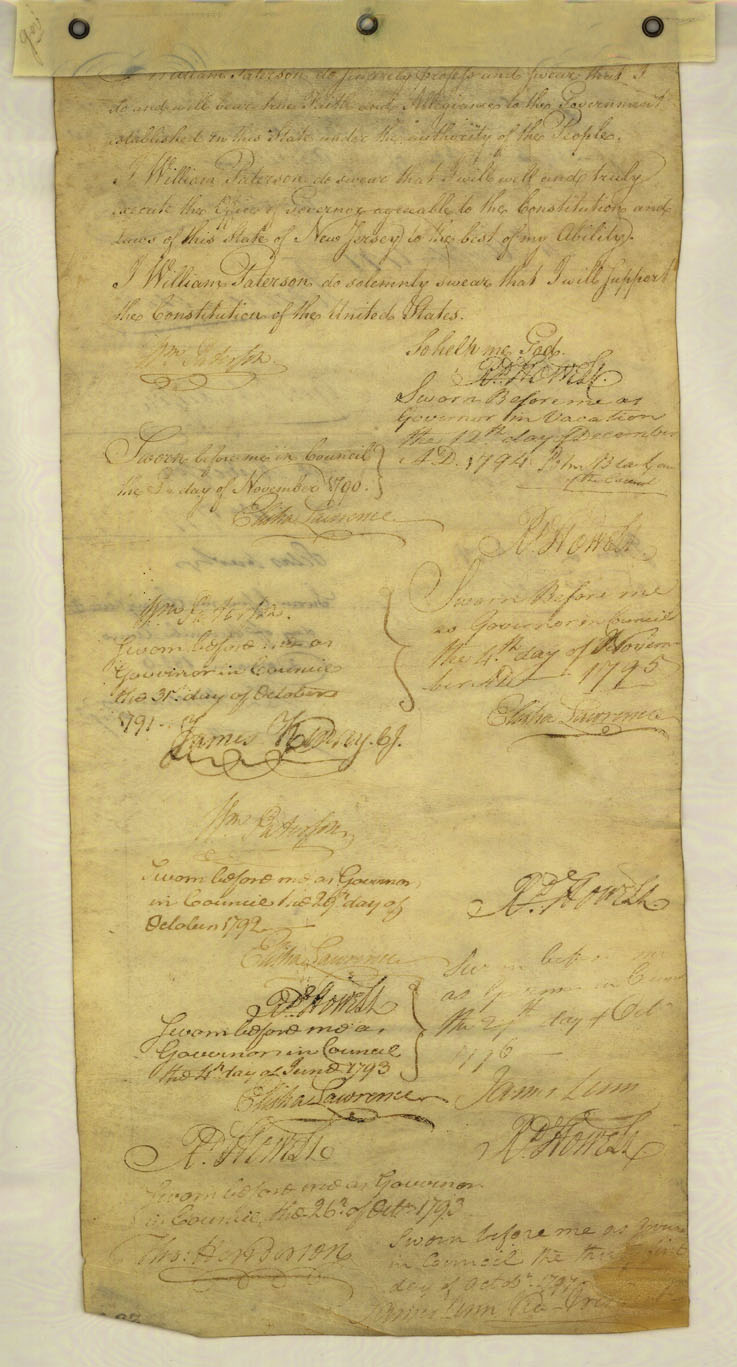 I William Paterson do sincerely profess and swear that I
do and will bear true Faith and Allegiance to the Government
established in this State under the authority of the People.
I William Paterson do swear that I will well and truly
execute the Office of Governor agreeable to the Constitution and
Laws of this State of New Jersey to the best of my Ability.
I William Paterson do solemnly swear that I will support
the Constitution of the United States.
So help me God.
Wm Paterson
Sworn before me in Council
the day of November 1790.
Elisha Lawrence
Wm Paterson.
Sworn before me as
Governor in Council
the 31st day of October
1791
James Kinsey. CJ.
Wm Paterson
Sworn before me as Governor
in Council the 29th day of
October 1792
Elisha Lawrence
Rd Howell
Sworn before me as
Governor in Council
the 4th day of June 1793
Elisha Lawrence
Rd Howell
Sworn before me as Governor
in Council, the 26th of Octr 1793
Thos Henderson
Rd Howell
Sworn Before me as
Governor in Vacation
the 12th day of December
A.D. 1794.
of the Council
Rd Howell
Sworn Before me
as Governor in Council
the 4th day of Novem-
ber AD 1795
Elisha Lawrence
Rd Howell
Sworn before me
as Governor in
the day of Octr
1796
James Linn
Rd Howell
Sworn before me as
in Council the
day of Octobr 1797
James Linn Vice-